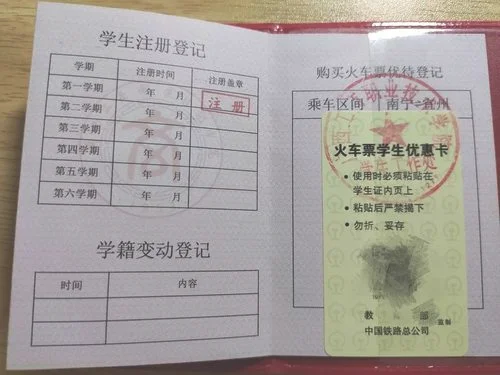 学生注册登记
学期 注册时间 注册盖章
第一学期 年 月
注册
第二学期 年 月
第三学期 年 月
第四学期 年 月
第五学期 年 月
第六学期 年 月
学籍变动登记
时间 内容
购买火车票优待登记
乘车区间 南宁
火车票学生优惠卡
● 使用时必须粘贴在
学生证内页上
● 粘贴后严禁揭下
● 勿折、妥存
教 部
监制
中国铁路总公司